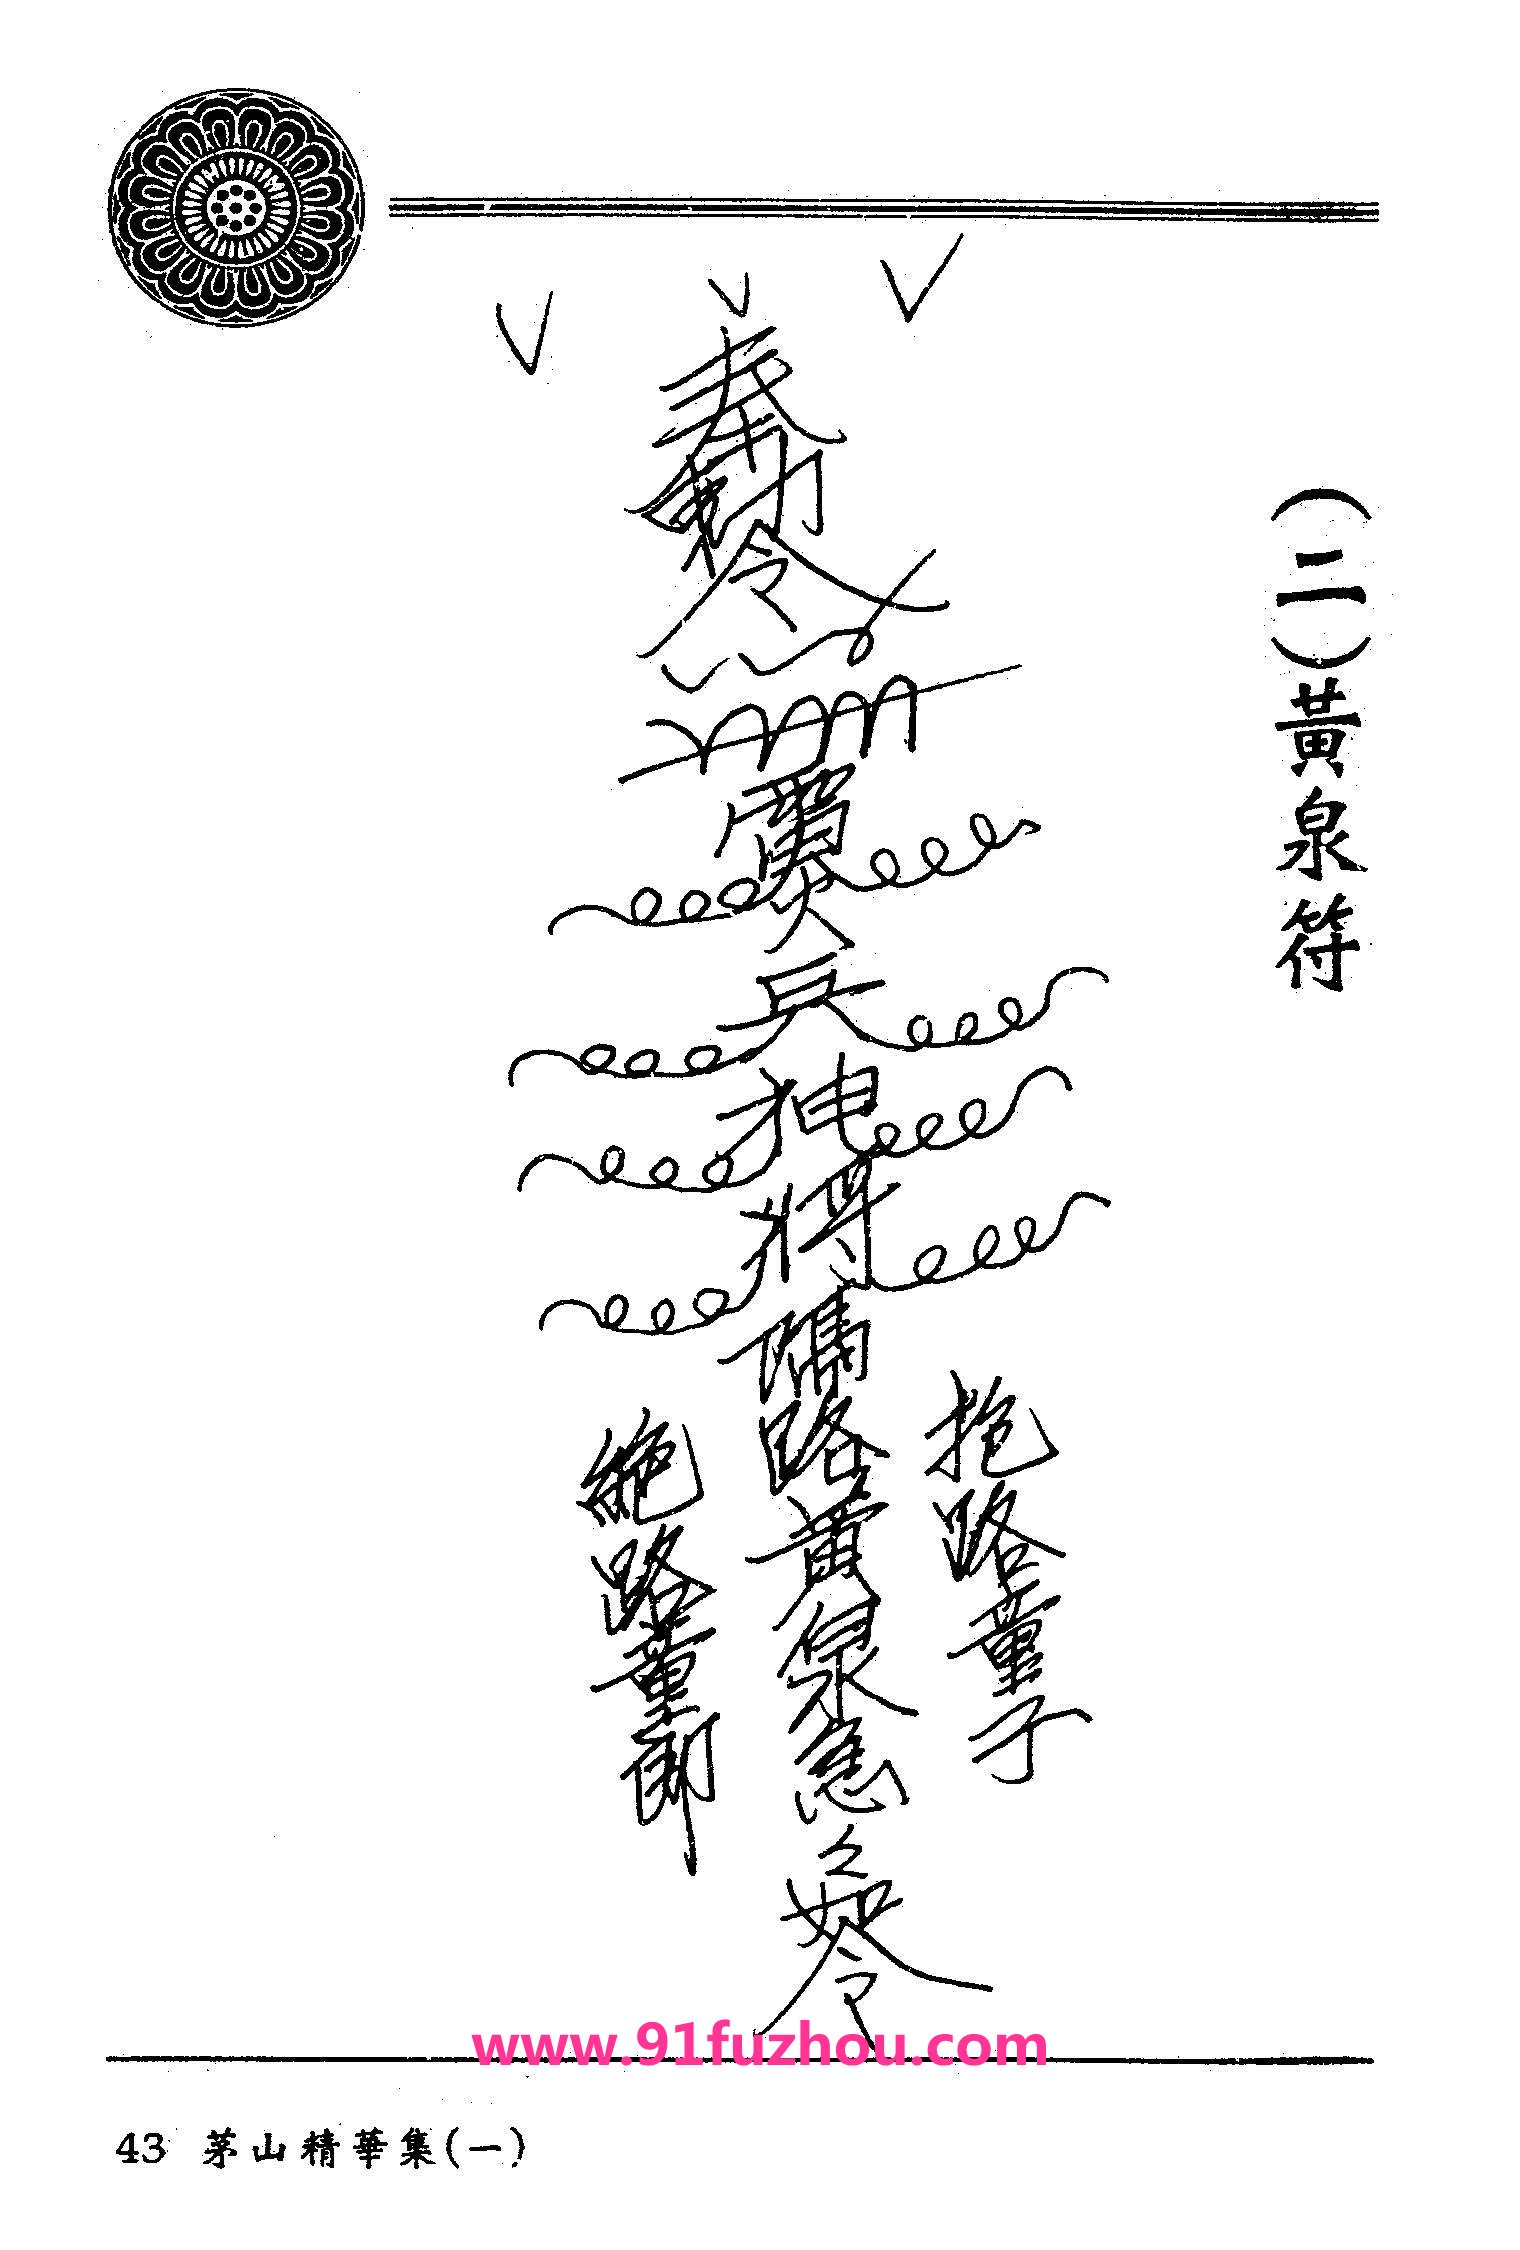 (二)黃泉符
奉
勅
令
兵
抻
將
隔
路
黃
泉
急
々
如
令
抱路童子
絶路童郎
www.91fuzhou.com
43 茅山精華集(一)